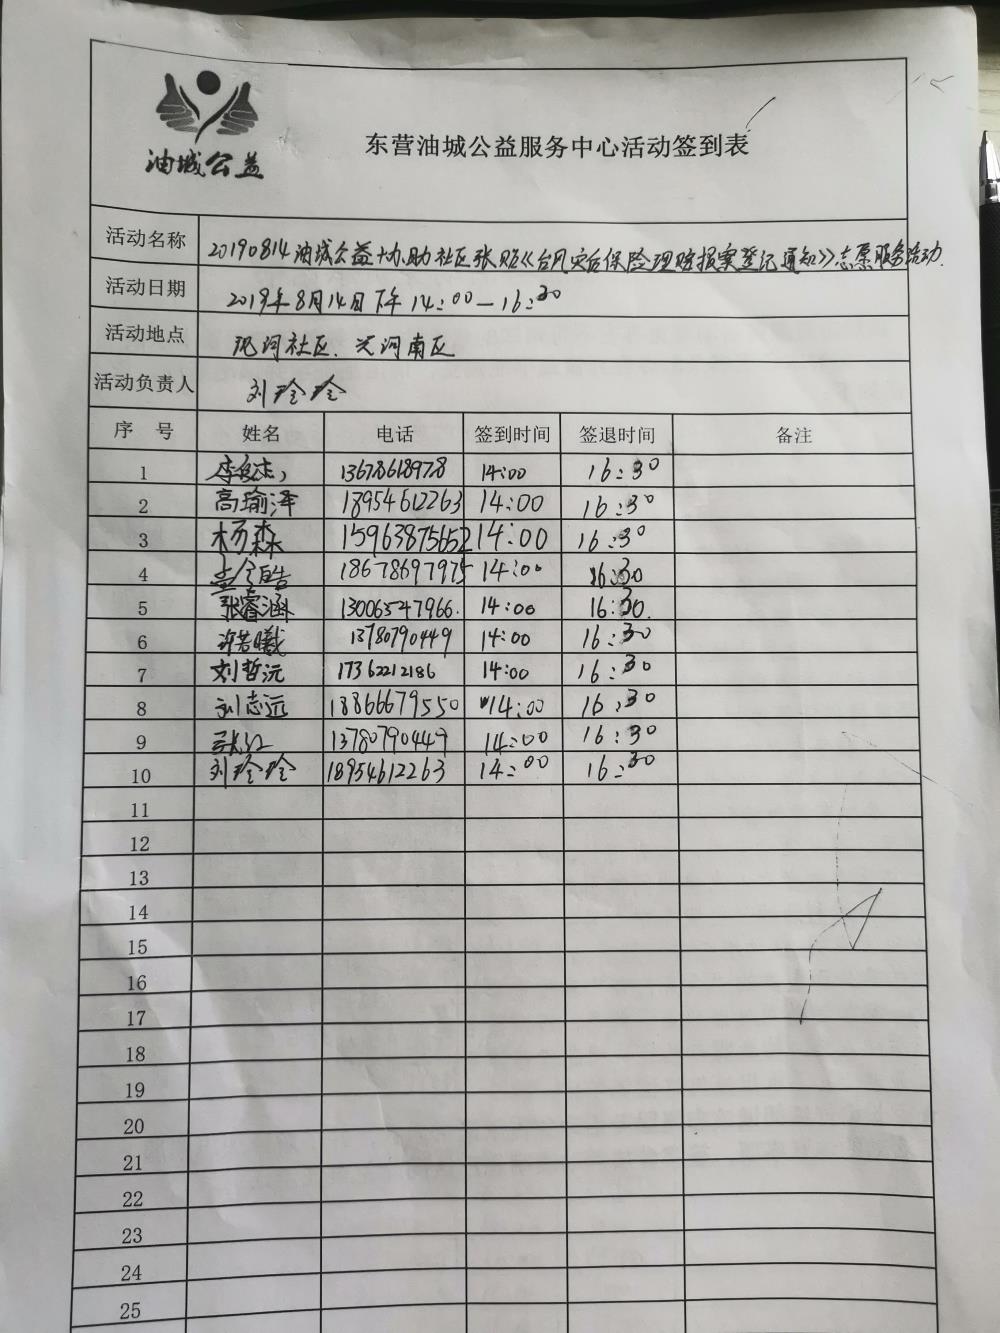 油城公益
东营油城公益服务中心活动签到表
活动名称 20190814油城公益协助社区张贴《台风灾后保险理赔报案登记通知》志愿服务活动
活动日期 2019年8月14日下午14:00—16:30
活动地点 现河社区、兴河南区
活动负责人 刘玲玲
序号 姓名 电话 签到时间 签退时间 备注
1 13678618978 14:00 16:30
2 高瑜泽 18954612263 14:00 16:30
3 杨森 15963875652 14:00 16:30
4 18678697975 14:00 16:30
5 张睿涵 13006547966. 14:00 16:30.
6 许若曦 13780790449 14:00 16:30
7 刘哲沅 17362212186 14:00 16:30
8 刘志远 18866679550 14:00 16:30
9 张红 13780790449 14:00 16:30
10 刘玲玲 18954612263 14:00 16:30
11
12
13
14
15
16
17
18
19
20
21
22
23
24
25